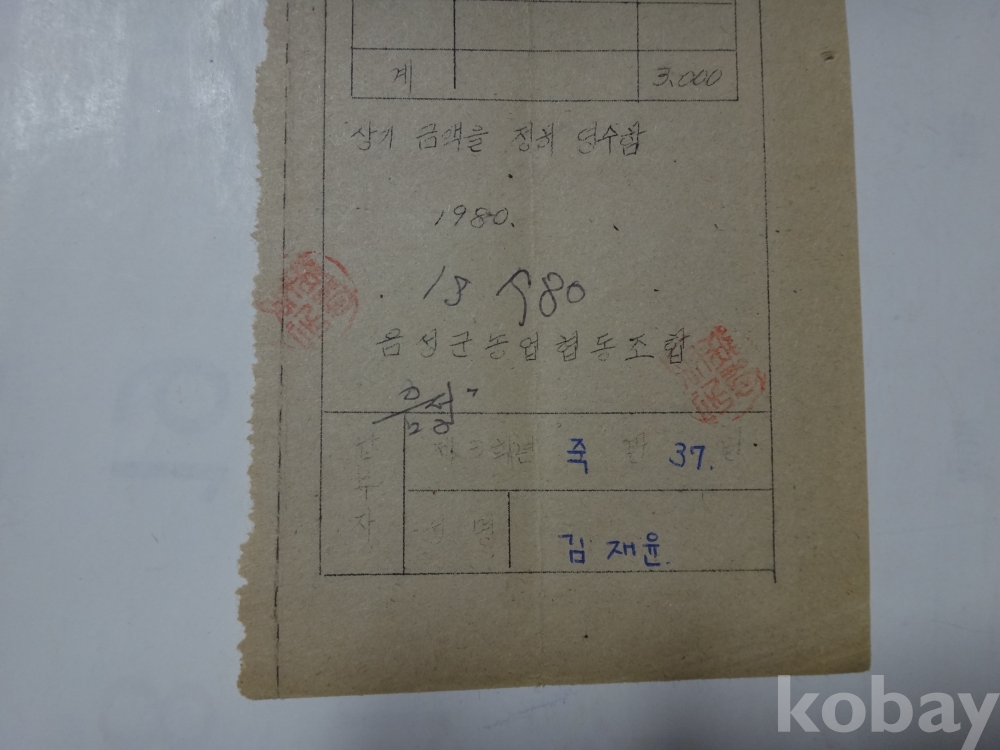 계 3.000
상기 금액을 정히 영수함
1980.
음성군농업협동조합
납부자 제3학년 죽 반 37.
성명 김재윤.
kobay